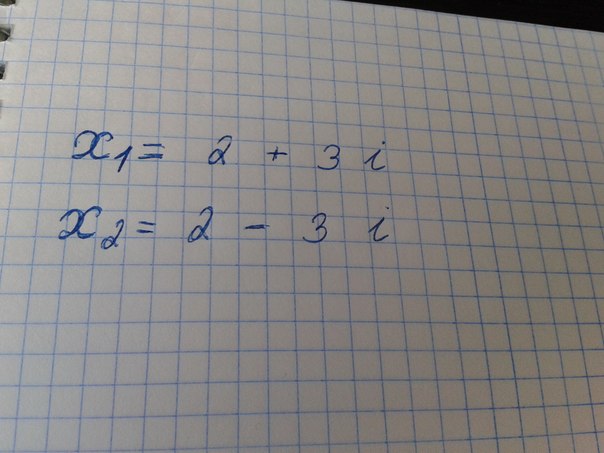 x₁ = 2 + 3 i
x₂ = 2 - 3 i